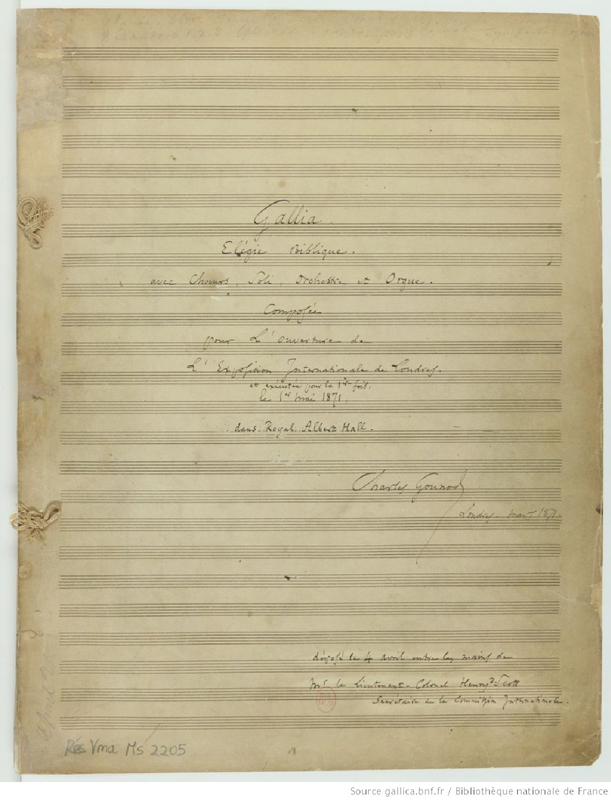 Gallia.
Elégie biblique.
avec Choeurs, Soli, Orchestre et Orgue.
Composée
pour L'ouverture de
L'Exposition Internationale de Londres.
et exécutée pour la 1ère fois.
le 1er mai 1871.
dans Royal Albert Hall.
Charles Gounod
Londres. mars 1871.
déposé le 4 avril entre les mains de
Mr. le Lieutenant-Colonel Henry Scott
Secrétaire de la Commission Internationale.
Rés Vma Ms 2205
Source gallica.bnf.fr / Bibliothèque nationale de France